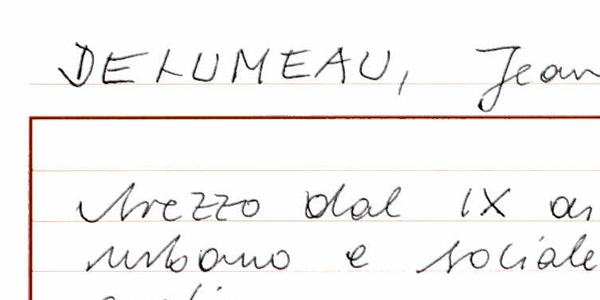 DELUMEAU, Jean
Arezzo dal IX
urbano e sociale